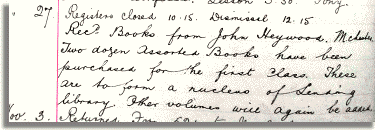 Lesson 3.30.
" 27. Registers closed 10.15. Dismissal 12.15
Recd. Books from John Heywood, Mchester
Two dozen Assorted Books have been
purchased for the first Class. These
are to form a nucleus of Lending
library. Other volumes will again be added.
Nov. 3. Returned